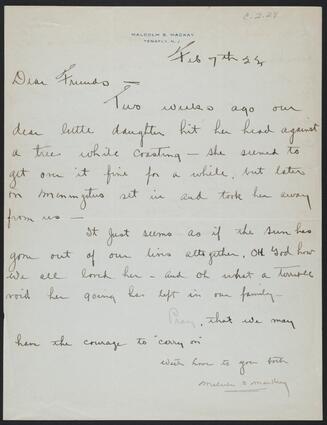 C.2.24
MALCOLM S. MACKAY
TENAFLY, N.J.
Feb 7th 24
Dear Friends —
Two weeks ago our
dear little daughter hit her head against
a tree while coasting — she seemed to
get over it fine for a while, but later
on Meningitus set in and took her away
from us —
It Just seems as if the sun has
gone out of our lives altogether, Oh God how
we all loved her — and oh what a terrible
void her going has left in our family —
Pray, that we may
have the courage to "carry on"
With love to you both
Malcolm S Mackay